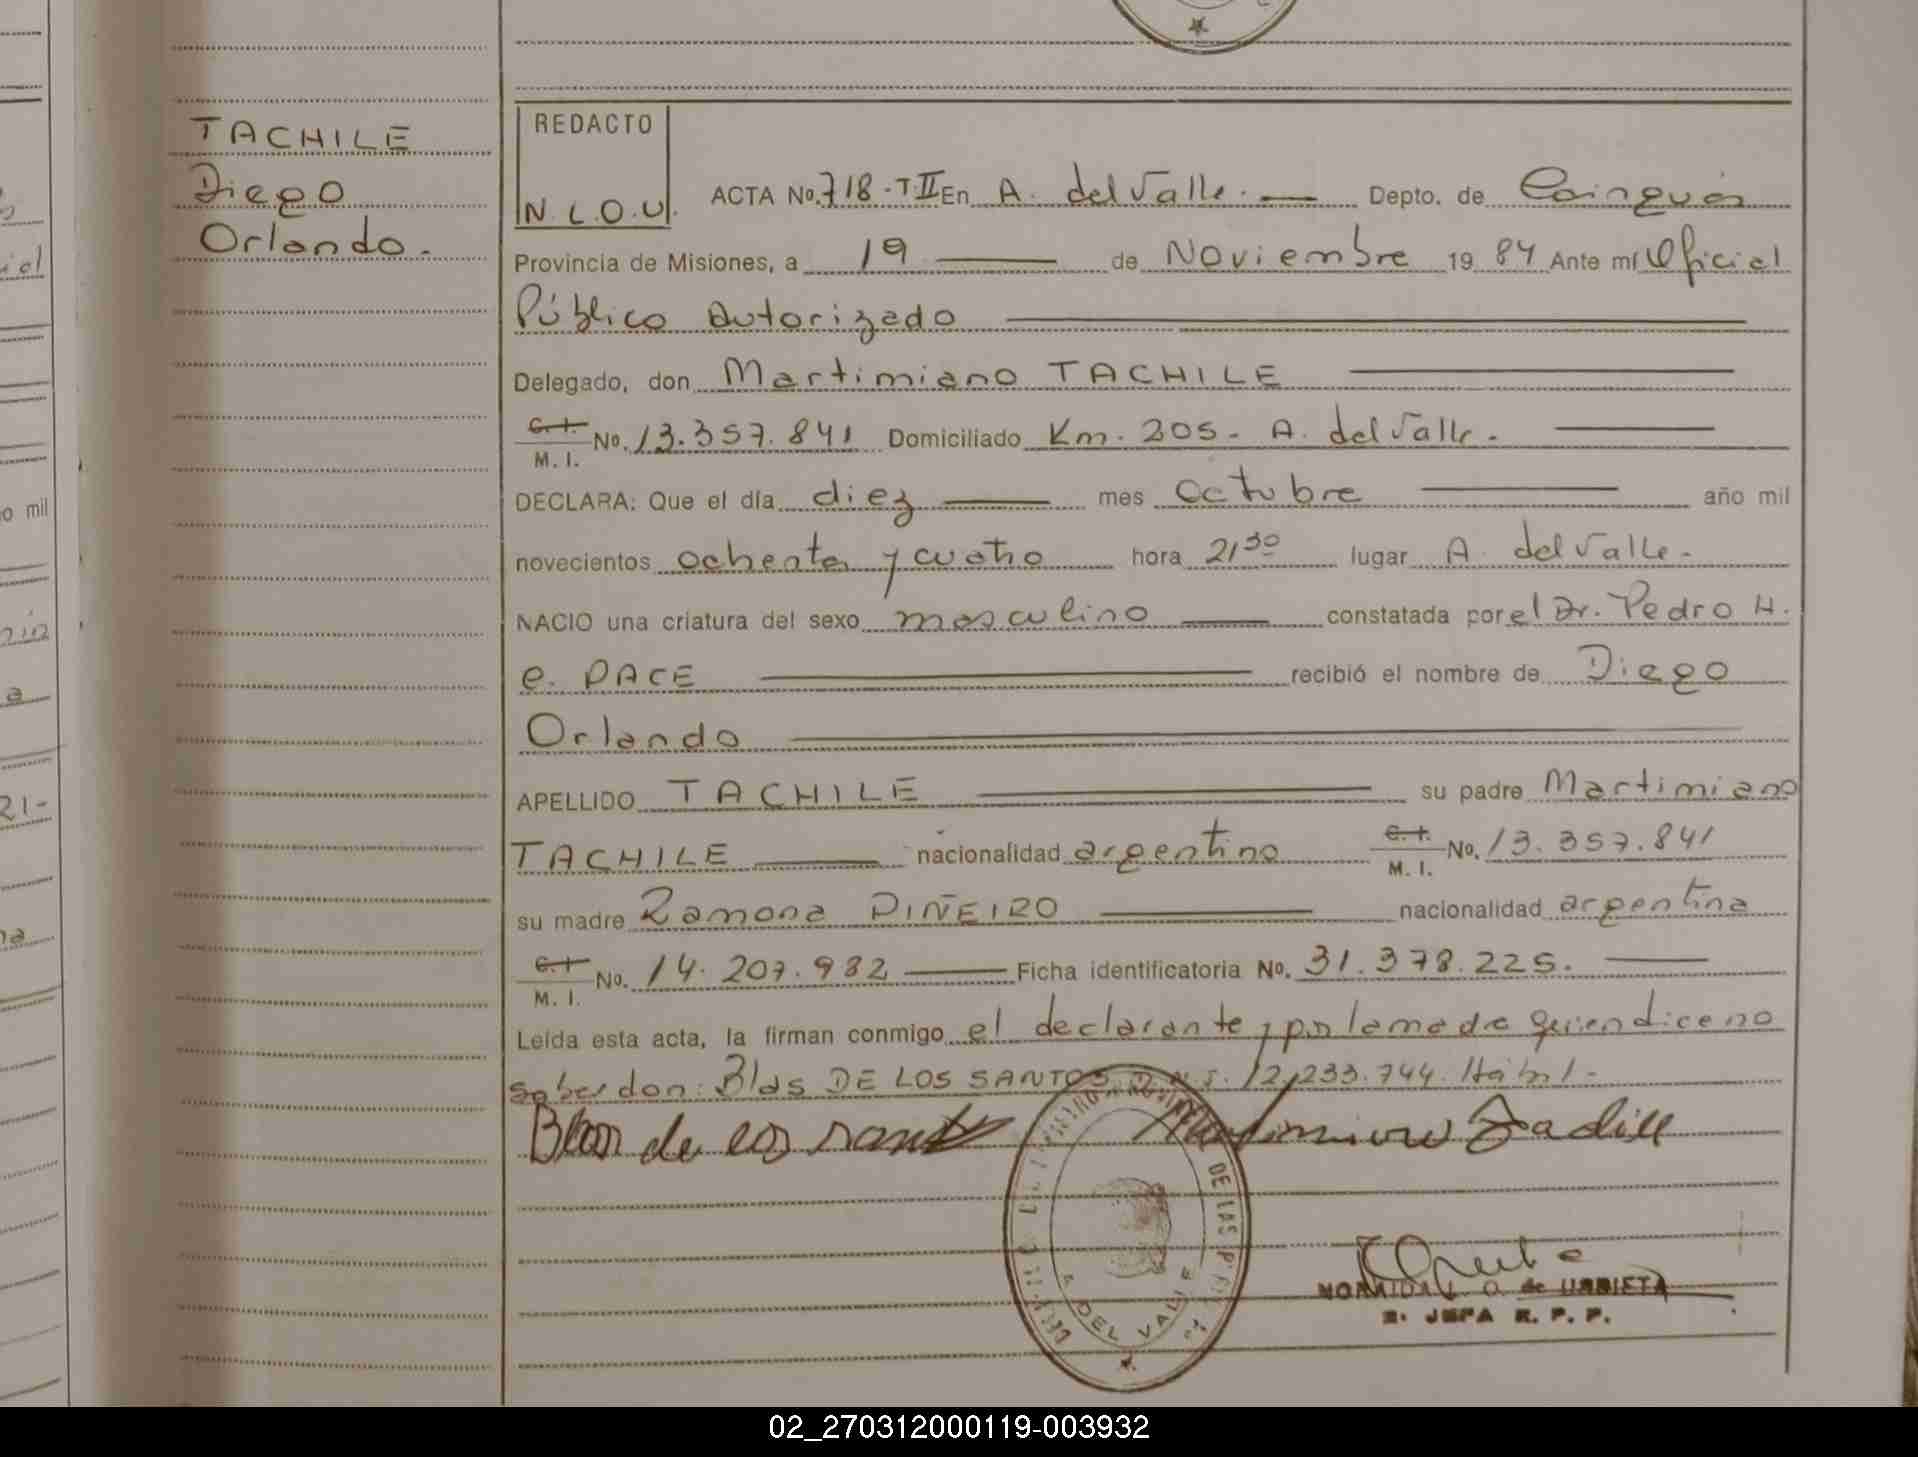 TACHILE
Diego
Orlando.
REDACTO
N.L.O.U.
ACTA No. 718-T II En A. del Valle. Depto. de Cainguás
Provincia de Misiones, a 19 de Noviembre 19 84 Ante mí Oficial
Público Autorizado
Delegado, don Martimiano TACHILE
C.I. M. I. No. 13.357.841 Domiciliado Km. 205- A. del Valle.
DECLARA: Que el día diez mes octubre año mil
novecientos ochenta y cuatro hora 21 30 lugar A. del Valle-
NACIO una criatura del sexo masculino constatada por el Dr. Pedro H.
e. PACE recibió el nombre de Diego
Orlando
APELLIDO TACHILE su padre Martimiano
TACHILE nacionalidad argentino C.I. M. I. No. 13.357.841
su madre Ramona PIÑEIRO nacionalidad argentina
C.I. M. I. No. 14.207.982 Ficha identificatoria No. 31.378.225.
Leída esta acta, la firman conmigo el declarante, por la madre quien dice no
saber don: Blas DE LOS SANTOS D.N.I. 12.233.744. Hábil-
Blas de los santos
A DEL VALLE
DE LAS
de URRIETA
JEFA R. P. P.
02_270312000119-003932